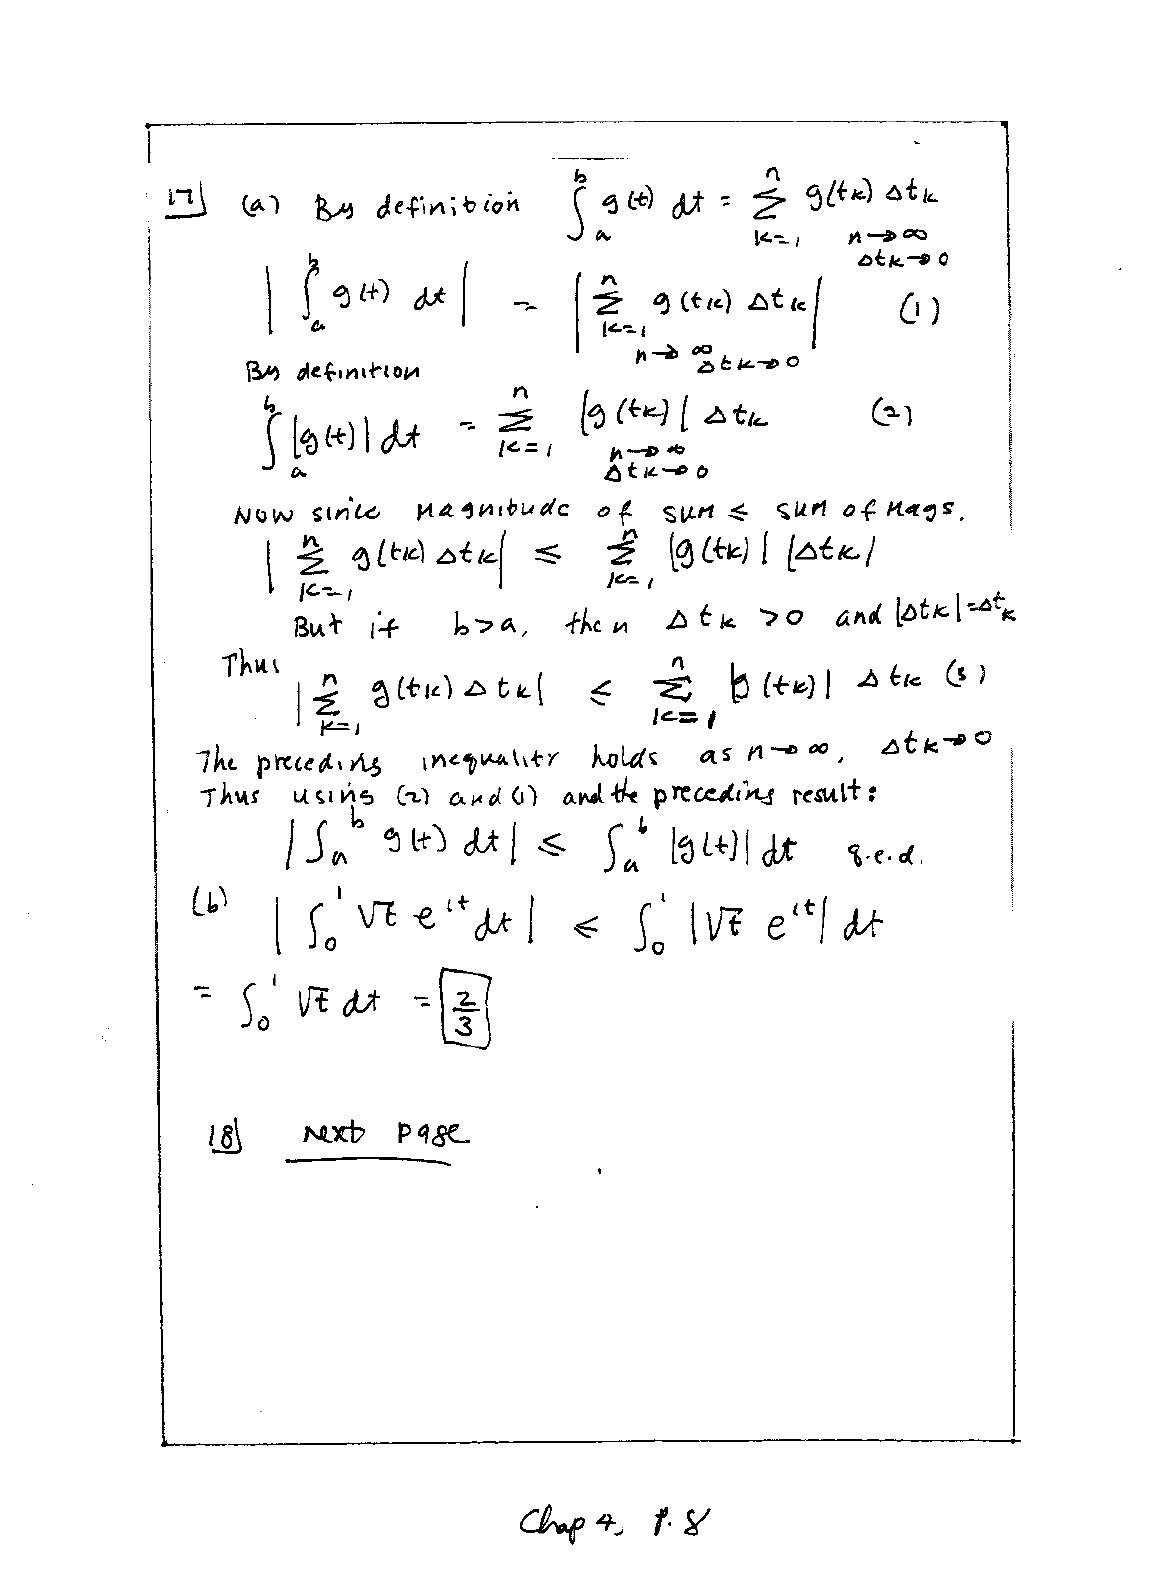 17] (a) By definition ∫_a^b g(t) dt = Σ_{k=1}^n g(tk) Δtk
n→∞
Δtk→0
|∫_a^b g(t) dt| = |Σ_{k=1}^n g(tk) Δtk| (1)
n→∞ Δtk→0
By definition
∫_a^b |g(t)| dt = Σ_{k=1}^n |g(tk)| Δtk (2)
n→∞
Δtk→0
Now since magnitude of sum ≤ sum of mags.
|Σ_{k=1}^n g(tk) Δtk| ≤ Σ_{k=1}^n |g(tk)| |Δtk|
But if b>a, then Δtk >0 and |Δtk|=Δtk
Thus
|Σ_{k=1}^n g(tk) Δtk| ≤ Σ_{k=1}^n |g(tk)| Δtk (3)
The preceding inequality holds as n→∞, Δtk→0
Thus using (2) and (1) and the preceding result:
|∫_a^b g(t) dt| ≤ ∫_a^b |g(t)| dt q.e.d.
(b) |∫_0^1 √t e^{it} dt| ≤ ∫_0^1 |√t e^{it}| dt
= ∫_0^1 √t dt = 2/3
18] Next page
Chap 4, p. 8